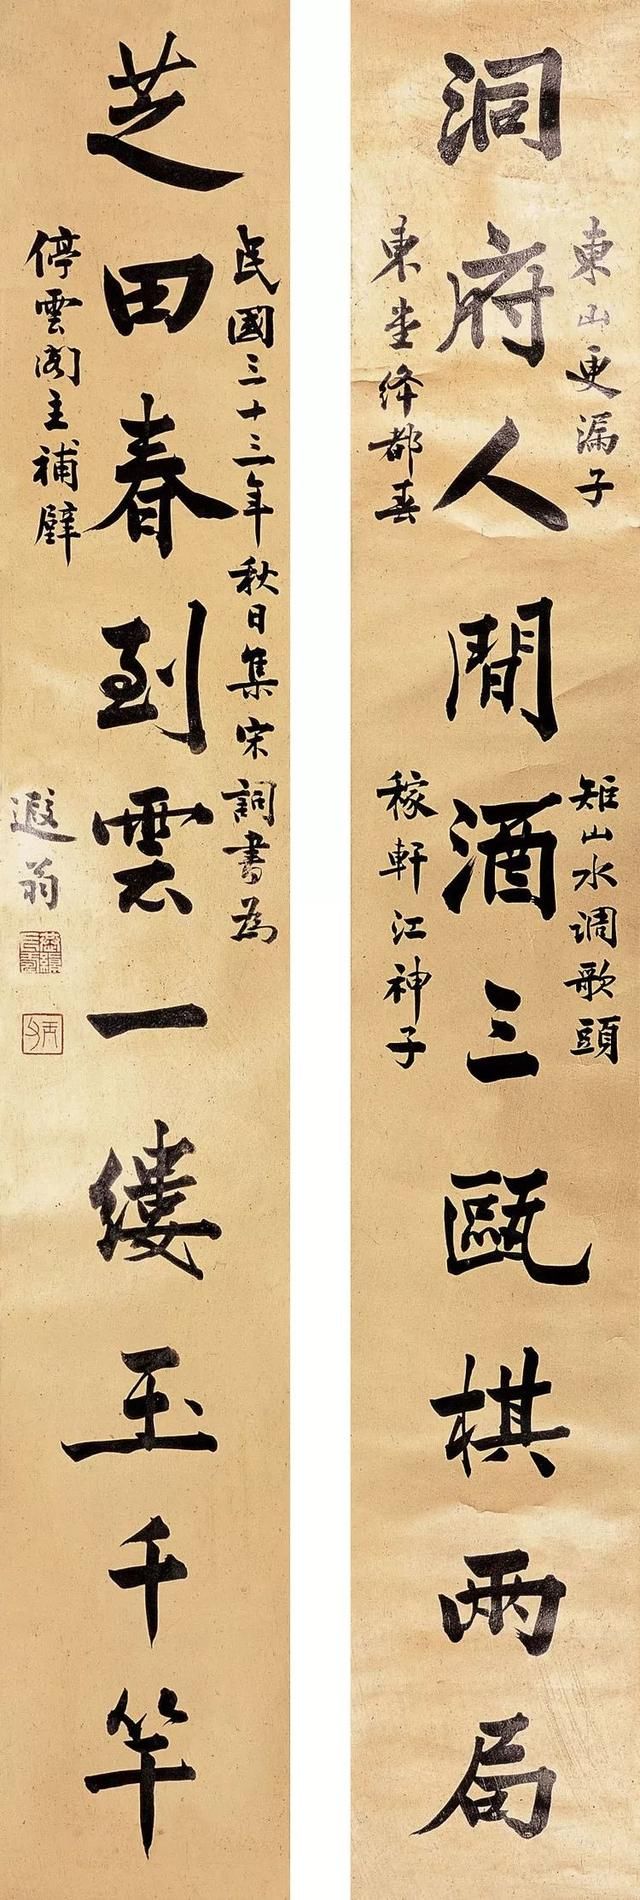 洞府人間酒三甌棋兩局
東山更漏子
東堂絳都春
雉山水調歌頭
稼軒江神子
芝田春到雲一縷玉千竿
民國三十三年秋日集宋詞書為
停雲閣主補壁
遐翁